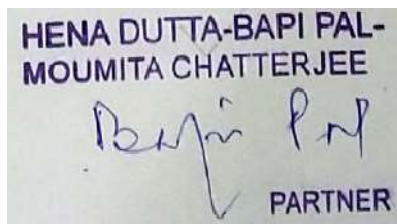 HENA DUTTA-BAPI PAL-
MOUMITA CHATTERJEE
Bapi Pal
PARTNER